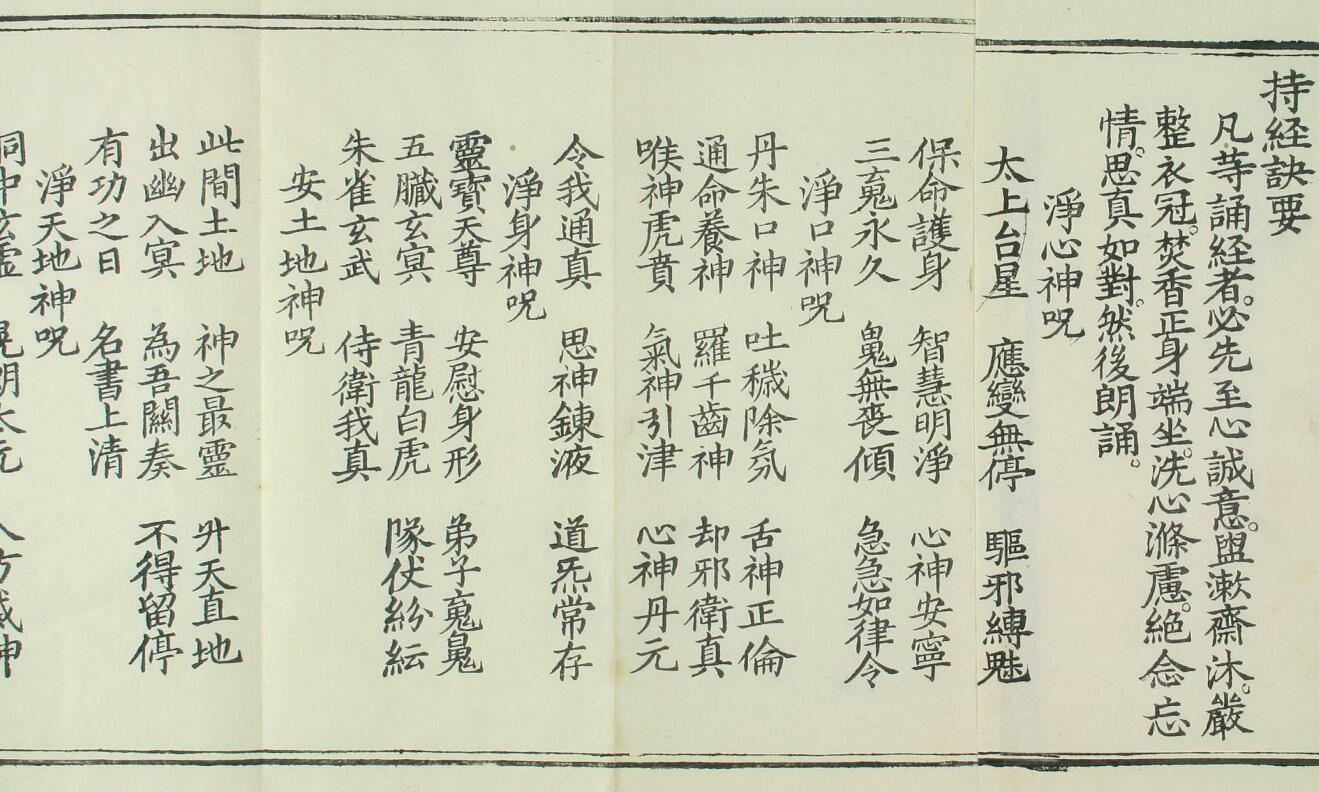 持経訣要
凡等誦経者。必先至心誠意。盥漱齋沐。嚴
整衣冠。焚香正身端坐。洗心滌慮。絕念忘
情。思真如對。然後朗誦。
淨心神呪
太上台星 應變無停 驅邪縛魅
保命護身 智慧明淨 心神安寧
三䰟永久 䰟無喪傾 急急如律令
淨口神呪
丹朱口神 吐穢除氛 舌神正倫
通命養神 羅千齒神 却邪衛真
喉神虎賁 氣神引津 心神丹元
令我通真 思神鍊液 道炁常存
淨身神呪
靈寶天尊 安慰身形 弟子䰟鬼
五臟玄冥 青龍白虎 隊伏紛紜
朱雀玄武 侍衛我真
安土地神呪
此間土地 神之最靈 升天直地
出幽入冥 為吾關奏 不得留停
有功之日 名書上清
淨天地神呪
洞中玄虛 晃朗太元 八方威神